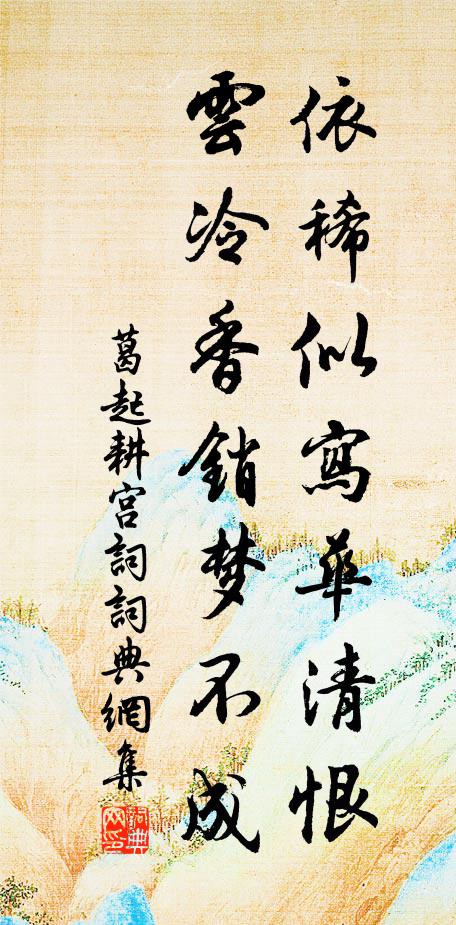 依稀似寫華清恨
雲冷香銷梦不成
葛起耕宫詞詞典網集
詞典网印